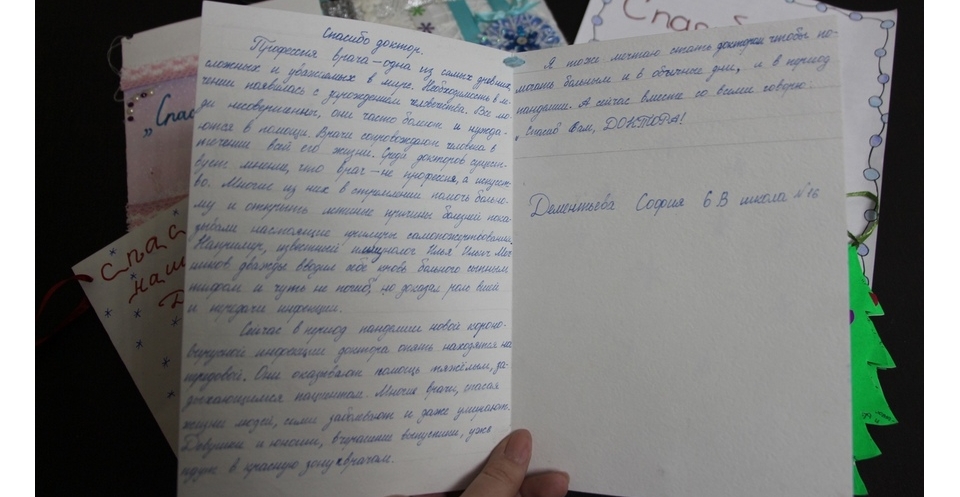 Спасибо доктор.
Профессия врача – одна из самых древних,
сложных и уважаемых в мире. Необходимость в ле-
чении появилась с зарождением человечества. Все лю-
ди несовершенны, они часто болеют и нужда-
ются в помощи. Врачи сопровождают человека в
течении всей его жизни. Среди докторов сущест-
вует мнение, что врач – не профессия, а искусст-
во. Многие из них в стремлении помочь больно-
му и открыть истинные причины болезней пока-
зывали настоящие примеры самопожертвования.
Например, известный Илья Ильич Меч
ников дважды вводил себе кровь больного сыпным
тифом и чуть не погиб, но доказал роль вшей
и передачи инфекции.
Сейчас в период пандемии новой короно-
вирусной инфекции доктора опять находятся на
передовой. Они оказывают помощь тяжёлым, за-
дыхающимся пациентам. Многие врачи, спасая
жизни людей, сами заболевают и даже умирают.
Девушки и юноши, вчерашние выпускники, уже
идут в красную зону к врачам.
Я тоже мечтаю стать доктором чтобы по-
могать больным и в обычные дни, и в период
пандемии. А сейчас вместе со всеми говорю:
Спасиб Вам, ДОКТОРА!
Дементьева София 6 В школа №16
„Спас
Спас
наш
Д
Спас